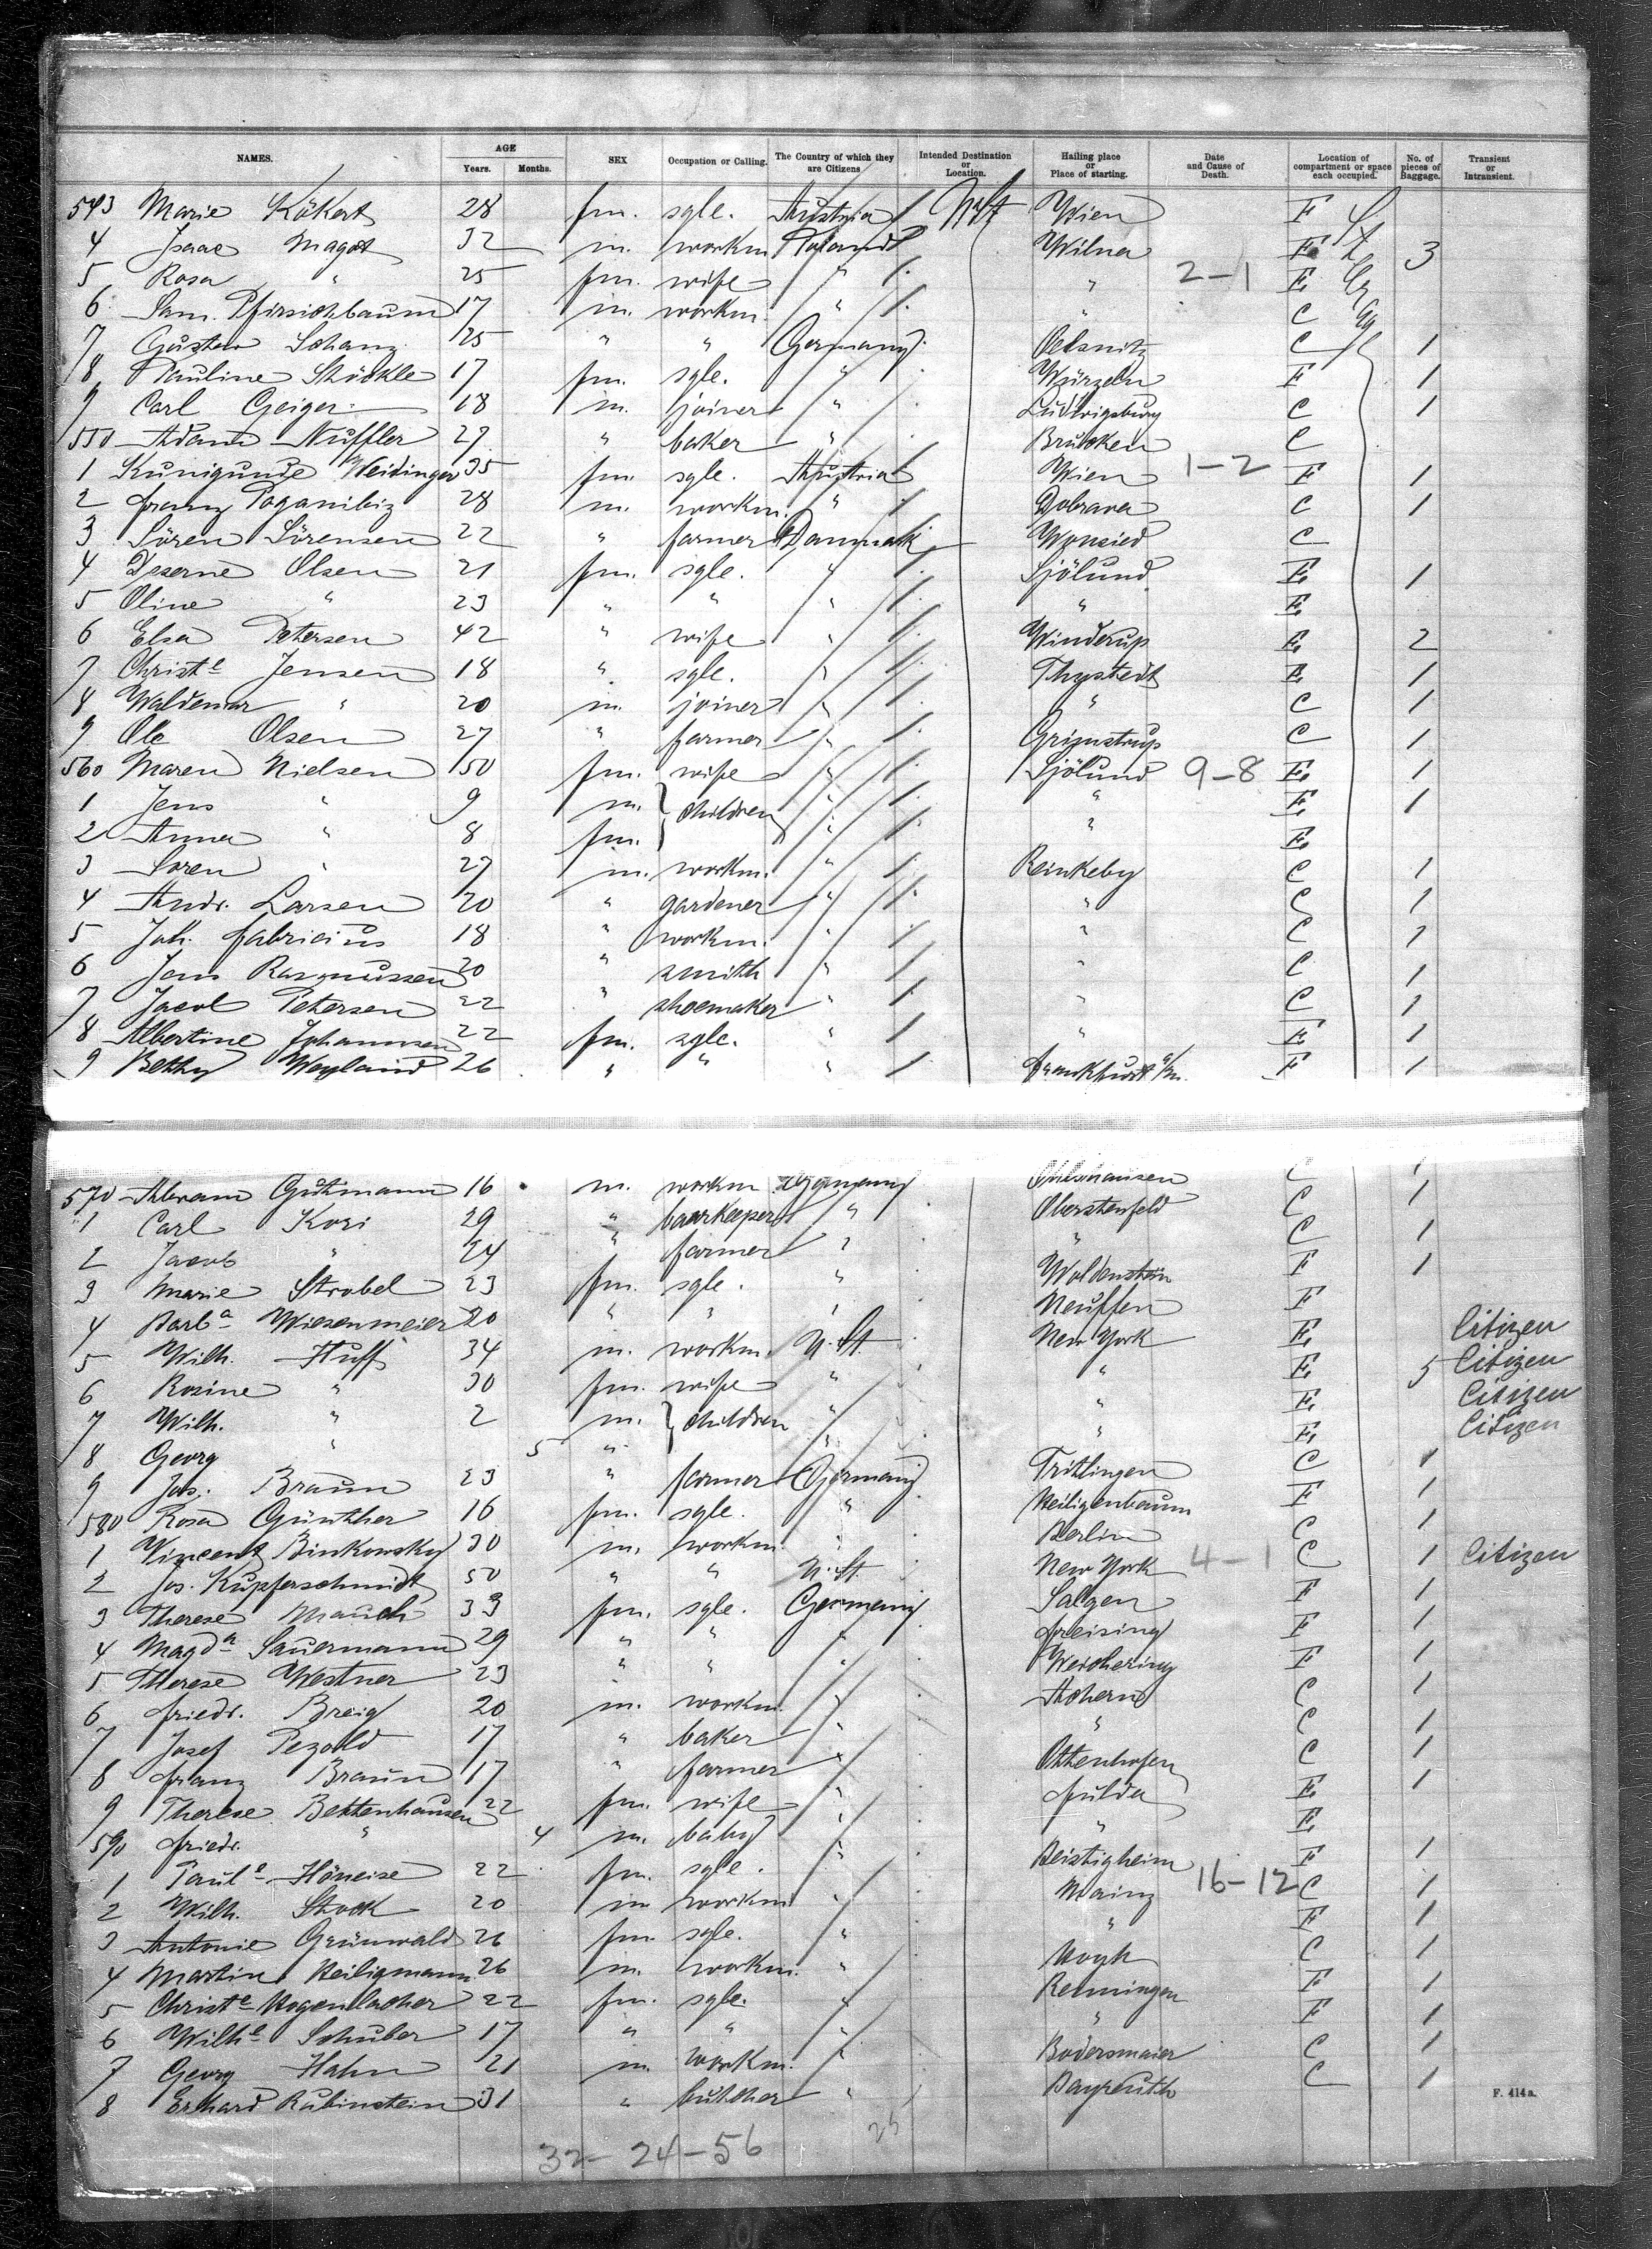 NAMES. AGE Years. Months. SEX Occupation or Calling. The Country of which they are Citizens Intended Destination or Location. Hailing place or Place of starting. Date and Cause of Death. Location of compartment or space each occupied. No. of pieces of Baggage. Transient or Intransient.
543 Marie Kökert 28 fm. sgle. Austria Wien F
4 Isaac Magat 32 m. workm. Poland Wilna E 3
5 Rosa " 25 fm. wife " " 2-1 E
6 Sam. Pfirsichbaum 17 m. workm. " " C
7 Gustav Schanz 25 " " Germany Oelsnitz C 1
8 Pauline Stöckle 17 fm. sgle. " Würzeln F 1
9 Carl Geiger 18 m. joiner " Ludwigsburg C 1
550 Adam Nuffler 27 " baker " Brücken C
1 Kunigunde Weidinger 35 fm. sgle. Austria Wien 1-2 F 1
2 Franz Poganibiz 28 m. workm. " Dobrava C 1
3 Sören Sörensen 22 " farmer Danmark Wonsied C
4 Deserne Olsen 21 fm. sgle. " Sjölund E 1
5 Oline " 23 " " " " E
6 Elsa Petersen 42 " wife " Winderup E 2
7 Christe Jensen 18 " sgle. " Thystedt E 1
8 Waldemar " 20 m. joiner " " C 1
9 Ole Olsen 27 " farmer " Grimstrup C 1
560 Maren Nielsen 50 fm. wife " Sjölund 9-8 E 1
1 Jens " 9 m. children " " E 1
2 Anna " 8 fm. " " E
3 Soren " 27 m. workm. " Reinkeby C 1
4 Andr. Larsen 20 " gardener " " C 1
5 Joh. Fabricius 18 " workm. " " C 1
6 Jens Rasmussen 20 " smith " " C 1
7 Jacob Petersen 22 " shoemaker " " C 1
8 Albertine Johannsen 22 fm. sgle. " " E 1
9 Betty Weyland 26 " " " Frankfurt a/m. F 1
570 Abram Gutmann 16 m. workm. Germany C 1
1 Carl Kori 29 " barkeeper " Oberstenfeld C 1
2 Jacob " 24 " farmer " " C 1
3 Marie Strobel 23 fm. sgle. " Woldenstein F 1
4 Barba Wiesenmeier 20 " " " Neuffen F
5 Wilh. Huff 34 m. workm. U. St. New York E Citizen
6 Rosine " 30 fm. wife " " E 5 Citizen
7 Wilh. " 2 m. children " " E Citizen
8 Georg " 5 " " " E Citizen
9 Jos. Braun 23 " farmer Germany Trittlingen C 1
580 Rosa Günther 16 fm. sgle. " Heiligenbaum F 1
1 Vincent Binkowsky 30 m. workm. " Berlin C 1
2 Jos. Kupferschmidt 50 " " U. St. New York 4-1 C 1 Citizen
3 Therese Mauch 33 fm. sgle. Germany Salgen F 1
4 Magda Sauermann 29 " " " Freising F 1
5 Therese Westner 23 " " " Weichering F 1
6 Friedr. Breig 20 m. workm. " Achern C 1
7 Josef Pezold 17 " baker " " C 1
8 Franz Braun 17 " farmer " Ottenhofen C 1
9 Therese Bettenhausen 22 fm. wife " Fulda E 1
590 Friedr. " 4 m. baby " " E
1 Paule Höneise 22 fm. sgle. " Beistigheim F 1
2 Wilh. Stock 20 m. workm. " Mainz 16-12 C 1
3 Antonie Grünwald 26 fm. sgle. " " F 1
4 Martin Heiligmann 26 m. workm. " C 1
5 Christe Hogenlocher 22 fm. sgle. " Renningen F 1
6 Wilhe Schuber 17 " " " " F 1
7 Georg Hahn 21 m. workm. " Bodersmaier C 1
8 Erhard Rubinstein 31 " butcher " Bayreuth C 1
F. 414a.
32-24-56 25